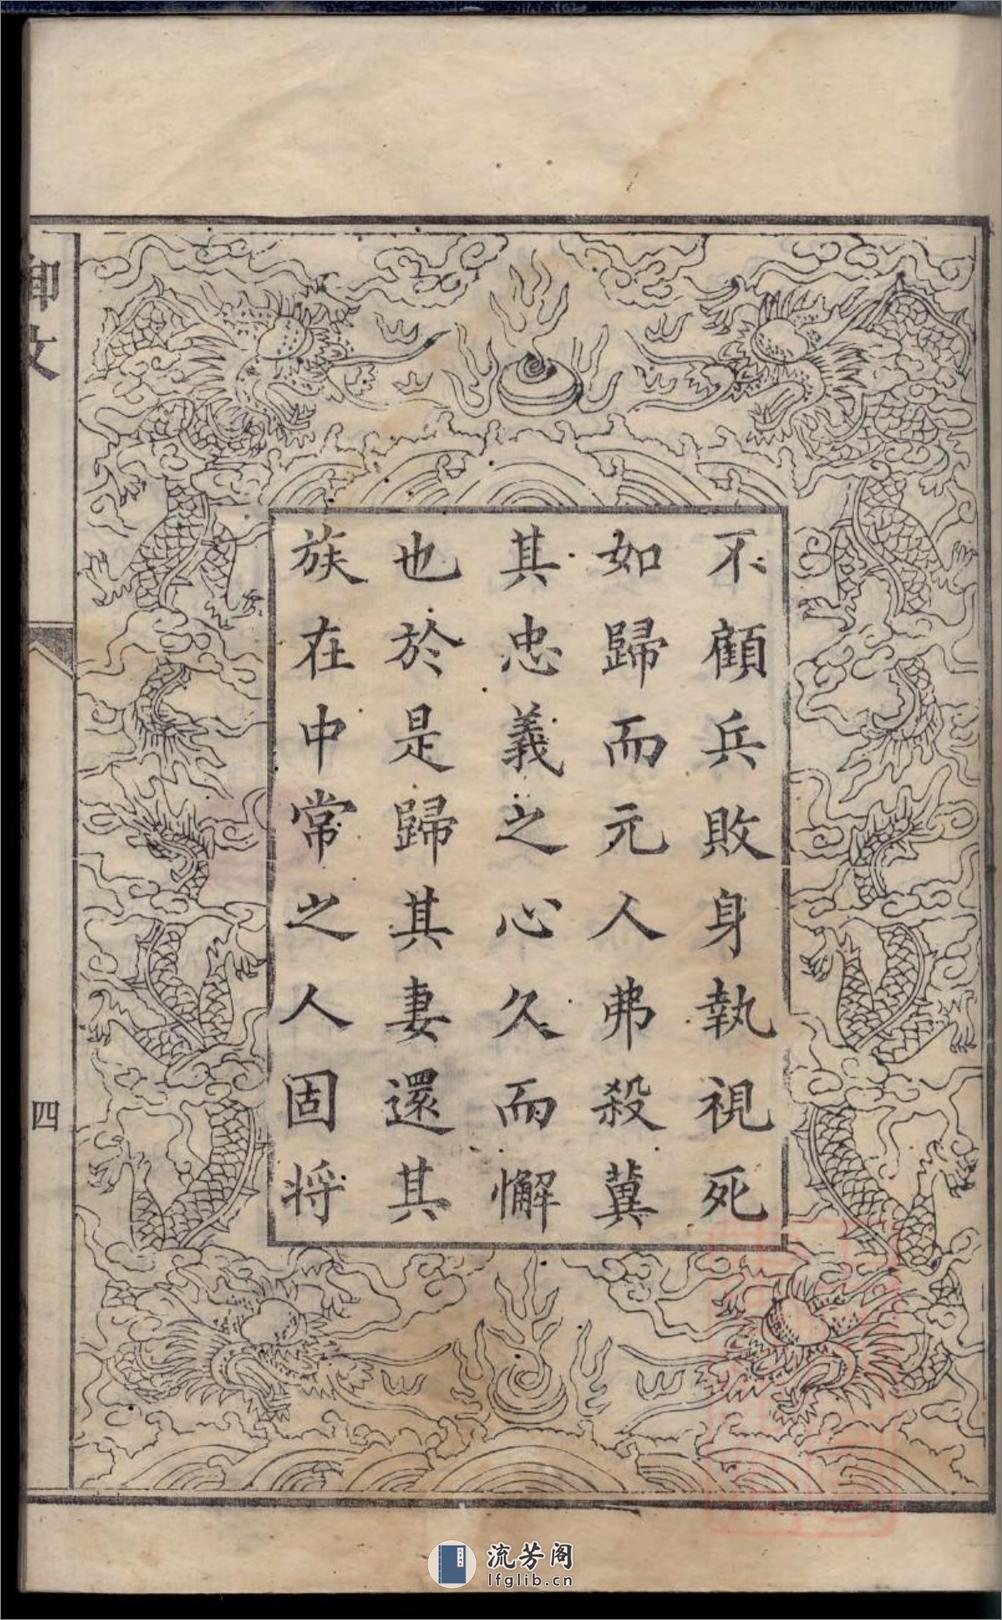 不顧兵敗身執視死
如歸而元人弗殺冀
其忠義之心久而懈
也於是歸其妻還其
族在中常之人固将
御文
四
流芳阁
lfglib.cn